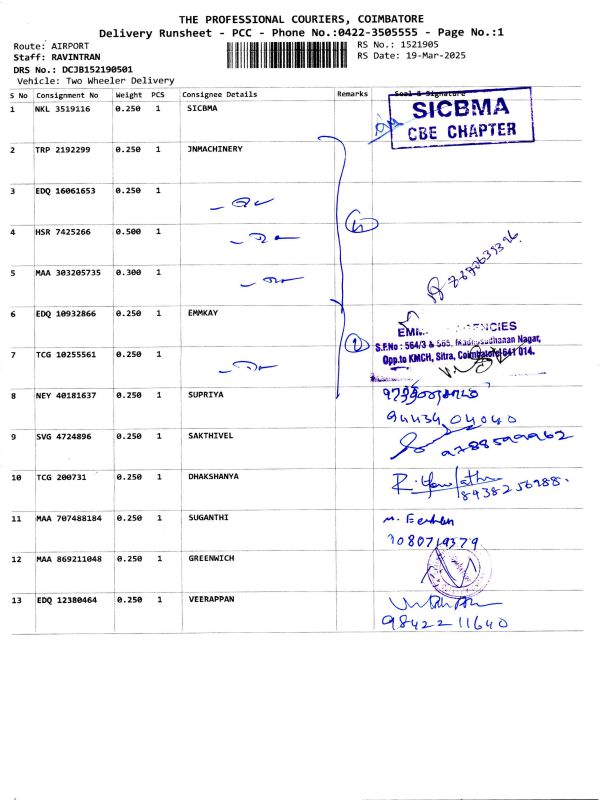 THE PROFESSIONAL COURIERS, COIMBATORE
Delivery Runsheet - PCC - Phone No.:0422-3505555 - Page No.:1
Route: AIRPORT
Staff: RAVINTRAN
DRS No.: DCJB152190501
Vehicle: Two Wheeler Delivery
RS No.: 1521905
RS Date: 19-Mar-2025
S No Consignment No Weight PCS Consignee Details Remarks Seal & Signature
1 NKL 3519116 0.250 1 SICBMA
SICBMA
CBE CHAPTER
2 TRP 2192299 0.250 1 JNMACHINERY
3 EDQ 16061653 0.250 1
4 HSR 7425266 0.500 1
5 MAA 303205735 0.300 1
6 EDQ 10932866 0.250 1 EMMKAY
S.F.No : 564/3 & 565, Madhusudhanan Nagar,
Opp.to KMCH, Sitra, Coimbatore-641 014.
7 TCG 10255561 0.250 1
8 NEY 40181637 0.250 1 SUPRIYA
94434 04040
9 SVG 4724896 0.250 1 SAKTHIVEL
9788599962
10 TCG 200731 0.250 1 DHAKSHANYA
8438256988.
11 MAA 707488184 0.250 1 SUGANTHI
9080719379
12 MAA 869211048 0.250 1 GREENWICH
13 EDQ 12380464 0.250 1 VEERAPPAN
98422 11640